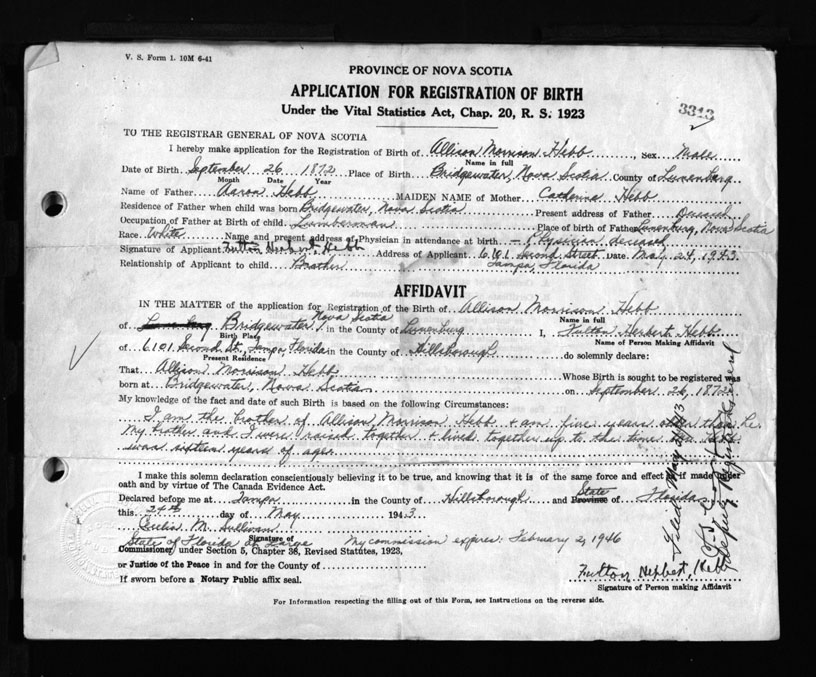 V. S. Form 1. 10M 6-41
PROVINCE OF NOVA SCOTIA
APPLICATION FOR REGISTRATION OF BIRTH
Under the Vital Statistics Act, Chap. 20, R. S. 1923
3313
TO THE REGISTRAR GENERAL OF NOVA SCOTIA
I hereby make application for the Registration of Birth of Allison Morrison Hebb, Sex Male
Name in full
Date of Birth September 26 1872 Place of Birth Bridgewater, Nova Scotia County of Lunenburg
Month Date Year
Name of Father Aaron Hebb MAIDEN NAME of Mother Hebb
Residence of Father when child was born Bridgewater, Nova Scotia Present address of Father Deceased
Occupation of Father at Birth of child Lumberman Place of birth of Father Lunenburg, Nova Scotia
Race White Name and present address of Physician in attendance at birth - Physician deceased
Signature of Applicant Fulton Herbert Hebb Address of Applicant 6101 Second Street Date May 24, 1943
Relationship of Applicant to child Brother Tampa, Florida
AFFIDAVIT
IN THE MATTER of the application for Registration of the Birth of Allison Morrison Hebb
Name in full
of Bridgewater, Nova Scotia in the County of Lunenburg I, Fulton Herbert Hebb
Birth Place Name of Person Making Affidavit
of 6101 Second St., Tampa, Florida in the County of Hillsborough do solemnly declare:
Present Residence
That Allison Morrison Hebb Whose Birth is sought to be registered was
born at Bridgewater, Nova Scotia on September 26, 1872
My knowledge of the fact and date of such Birth is based on the following Circumstances:
I am the brother of Allison Morrison Hebb + am five years older than he.
My brother and I were raised together + lived together up to the time
I was sixteen years of age.
I make this solemn declaration conscientiously believing it to be true, and knowing that it is of the same force and effect as if made under
oath and by virtue of The Canada Evidence Act.
Declared before me at Tampa in the County of Hillsborough and State Province of Florida
this 24th day of May 1943
M. Sullivan
Signature of
State of Florida at Large My commission expires: February 2, 1946
Commissioner under Section 5, Chapter 36, Revised Statutes, 1923,
or Justice of the Peace in and for the County of
If sworn before a Notary Public affix seal.
Fulton Herbert Hebb
Signature of Person making Affidavit
For Information respecting the filling out of this Form, see Instructions on the reverse side.
Filed May
Deputy Registrar General